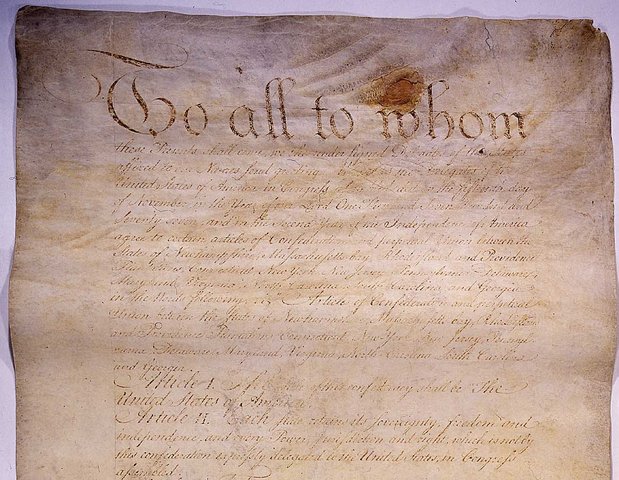 To all to whom
these Presents shall come, we the under signed Delegates of the States
affixed to our Names send greeting. Whereas the Delegates of the
United States of America in Congress assembled did on the fifteenth day
of November in the Year of our Lord One Thousand Seven Hundred and
Seventy seven, and in the Second Year of the Independence of America
agree to certain articles of Confederation and perpetual Union between the
States of Newhampshire, Massachusetts-bay, Rhodeisland and Providence
Plantations, Connecticut, New York, New Jersey, Pennsylvania, Delaware,
Maryland, Virginia, North-Carolina, South-Carolina, and Georgia
in the Words following, viz. "Articles of Confederation and perpetual
Union between the States of Newhampshire, Massachusetts-bay, Rhodeisland
and Providence Plantations, Connecticut, New-York, New-Jersey, Pennsyl-
vania, Delaware, Maryland, Virginia, North-Carolina, South-Carolina
and Georgia.
Article I. The Stile of this confederacy shall be "The
United States of America."
Article II. Each state retains its sovereignty, freedom and
independence, and every Power, Jurisdiction and right, which is not by
this confederation expressly delegated to the United States, in Congress
assembled.